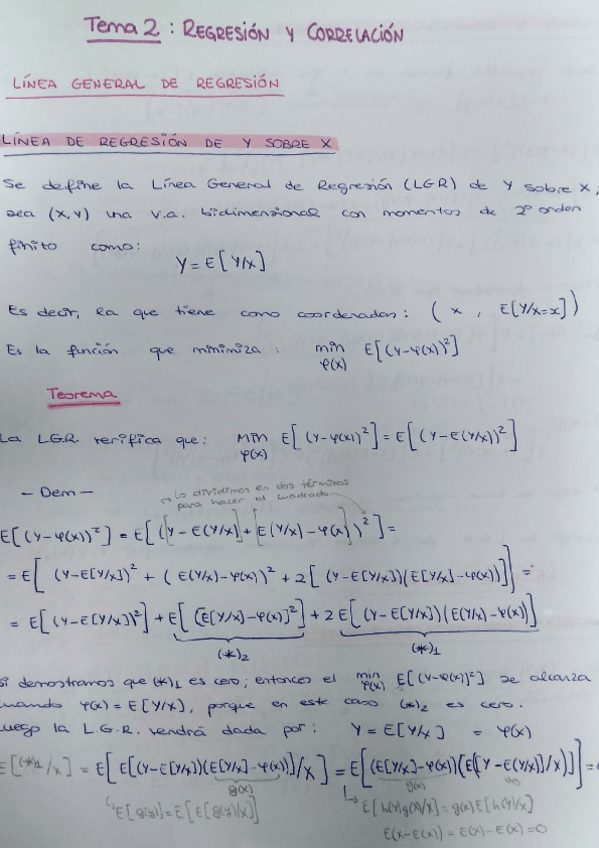 Tema 2 : REGRESIÓN Y CORRELACIÓN
LÍNEA GENERAL DE REGRESIÓN
LÍNEA DE REGRESIÓN DE Y SOBRE X
Se define la Línea General de Regresión (LGR) de Y sobre X,
sea (X,Y) una v.a. bidimensional con momentos de 2º orden
finito como:
Y = E[Y/X]
Es decir, la que tiene como coordenadas: ( x , E[Y/X=x])
Es la función que minimiza : min E[(Y-φ(x))²]
φ(x)
Teorema
La L.G.R. verifica que: Min E[(Y-φ(x))²] = E[(Y-E(Y/X))²]
φ(x)
- Dem -
→ Lo dividimos en dos términos
para hacer el cuadrado
E[(Y-φ(x))²] = E[(Y-E(Y/X] + E(Y/X)-φ(x))²] =
= E[ (Y-E[Y/X])² + (E(Y/X)-φ(x))² + 2[(Y-E[Y/X])(E[Y/X]-φ(x))]] =
= E[(Y-E[Y/X])²] + E[(E[Y/X]-φ(x)]²] + 2E[(Y-E[Y/X])(E(Y/X)-φ(x))]
(*)₂ (*)₁
Si demostramos que (*)₁ es cero; entonces el min E[(Y-φ(x))²] se alcanza
φ(x)
cuando φ(x) = E[Y/X], porque en este caso (*)₂ es cero.
Luego la L.G.R. vendrá dada por: Y = E[Y/X] = φ(x)
E[(*)₁/X] = E[E[(Y-E[Y/X])(E[Y/X]-φ(x))]/X] = E[(E[Y/X]-φ(x))(E([Y-E(Y/X)]/X))] =
g(x) g(x)
E[g(Y)] = E[E[g(Y)/X]]
↳ E[h(Y)g(X)/X] = g(X)E[h(Y)/X]
E(X-E(X)) = E(X)-E(X) = 0